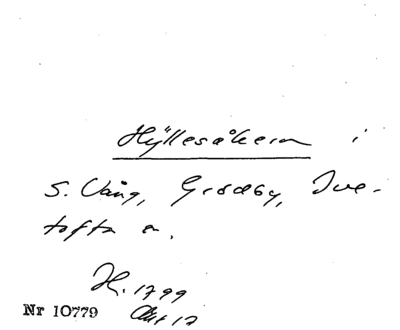 Hyllesåkern i
S. Vång, Grödby, Ive-
tofta s.
H. 1799
Akt 17
Nr 10779